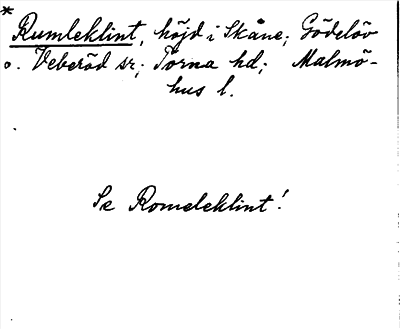 * Rumleklint, höjd i Skåne; Gödelöv
o. Veberöd sr; Torna hd; Malmö-
hus l.
Se Romeleklint!